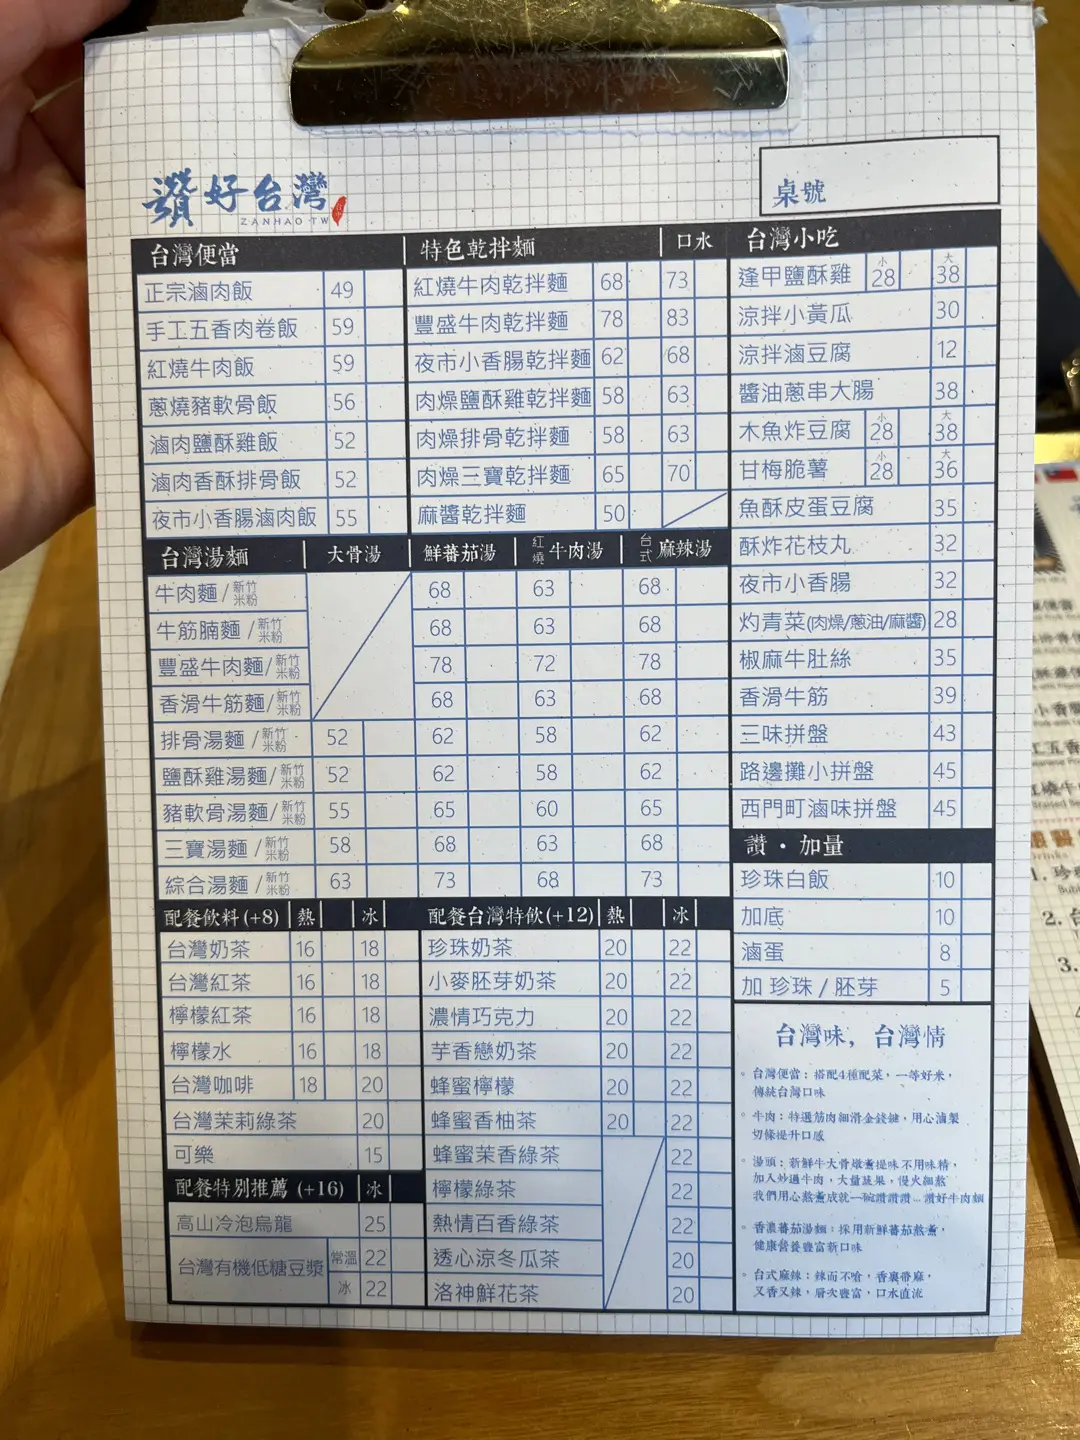 讚好台灣
ZANHAO TW
桌號
台灣便當
正宗滷肉飯 49
手工五香肉卷飯 59
紅燒牛肉飯 59
蔥燒豬軟骨飯 56
滷肉鹽酥雞飯 52
滷肉香酥排骨飯 52
夜市小香腸滷肉飯 55
特色乾拌麵 口水
紅燒牛肉乾拌麵 68 73
豐盛牛肉乾拌麵 78 83
夜市小香腸乾拌麵 62 68
肉燥鹽酥雞乾拌麵 58 63
肉燥排骨乾拌麵 58 63
肉燥三寶乾拌麵 65 70
麻醬乾拌麵 50
台灣湯麵 大骨湯 鮮蕃茄湯 紅燒牛肉湯 台式麻辣湯
牛肉麵/新竹米粉 68 63 68
牛筋腩麵/新竹米粉 68 63 68
豐盛牛肉麵/新竹米粉 78 72 78
香滑牛筋麵/新竹米粉 68 63 68
排骨湯麵/新竹米粉 52 62 58 62
鹽酥雞湯麵/新竹米粉 52 62 58 62
豬軟骨湯麵/新竹米粉 55 65 60 65
三寶湯麵/新竹米粉 58 68 63 68
綜合湯麵/新竹米粉 63 73 68 73
配餐飲料(+8) 熱 冰
台灣奶茶 16 18
台灣紅茶 16 18
檸檬紅茶 16 18
檸檬水 16 18
台灣咖啡 18 20
台灣茉莉綠茶 20
可樂 15
配餐特別推薦 (+16) 冰
高山冷泡烏龍 25
台灣有機低糖豆漿 常溫 22
冰 22
配餐台灣特飲(+12) 熱 冰
珍珠奶茶 20 22
小麥胚芽奶茶 20 22
濃情巧克力 20 22
芋香戀奶茶 20 22
蜂蜜檸檬 20 22
蜂蜜香柚茶 20 22
蜂蜜茉香綠茶 22
檸檬綠茶 22
熱情百香綠茶 22
透心涼冬瓜茶 20
洛神鮮花茶 20
台灣小吃
逢甲鹽酥雞 小 28 大 38
涼拌小黃瓜 30
涼拌滷豆腐 12
醬油蔥串大腸 38
木魚炸豆腐 小 28 大 38
甘梅脆薯 小 28 大 36
魚酥皮蛋豆腐 35
酥炸花枝丸 32
夜市小香腸 32
灼青菜(肉燥/蔥油/麻醬) 28
椒麻牛肚絲 35
香滑牛筋 39
三味拼盤 43
路邊攤小拼盤 45
西門町滷味拼盤 45
讚・加量
珍珠白飯 10
加底 10
滷蛋 8
加 珍珠 / 胚芽 5
台灣味，台灣情
台灣便當：搭配4種配菜，一等好米，
傳統台灣口味
牛肉：特選筋肉細滑金錢腱，用心滷製
切條提升口感
湯頭：新鮮牛大骨燉煮提味不用味精，
加入炒過牛肉，大量蔬果，慢火細熬
我們用心熬煮成就一碗讚讚讚...讚好牛肉麵
香濃蕃茄湯麵：採用新鮮蕃茄熬煮，
健康營養豐富新口味
台式麻辣：辣而不嗆，香裏帶麻，
又香又辣，層次豐富，口水直流